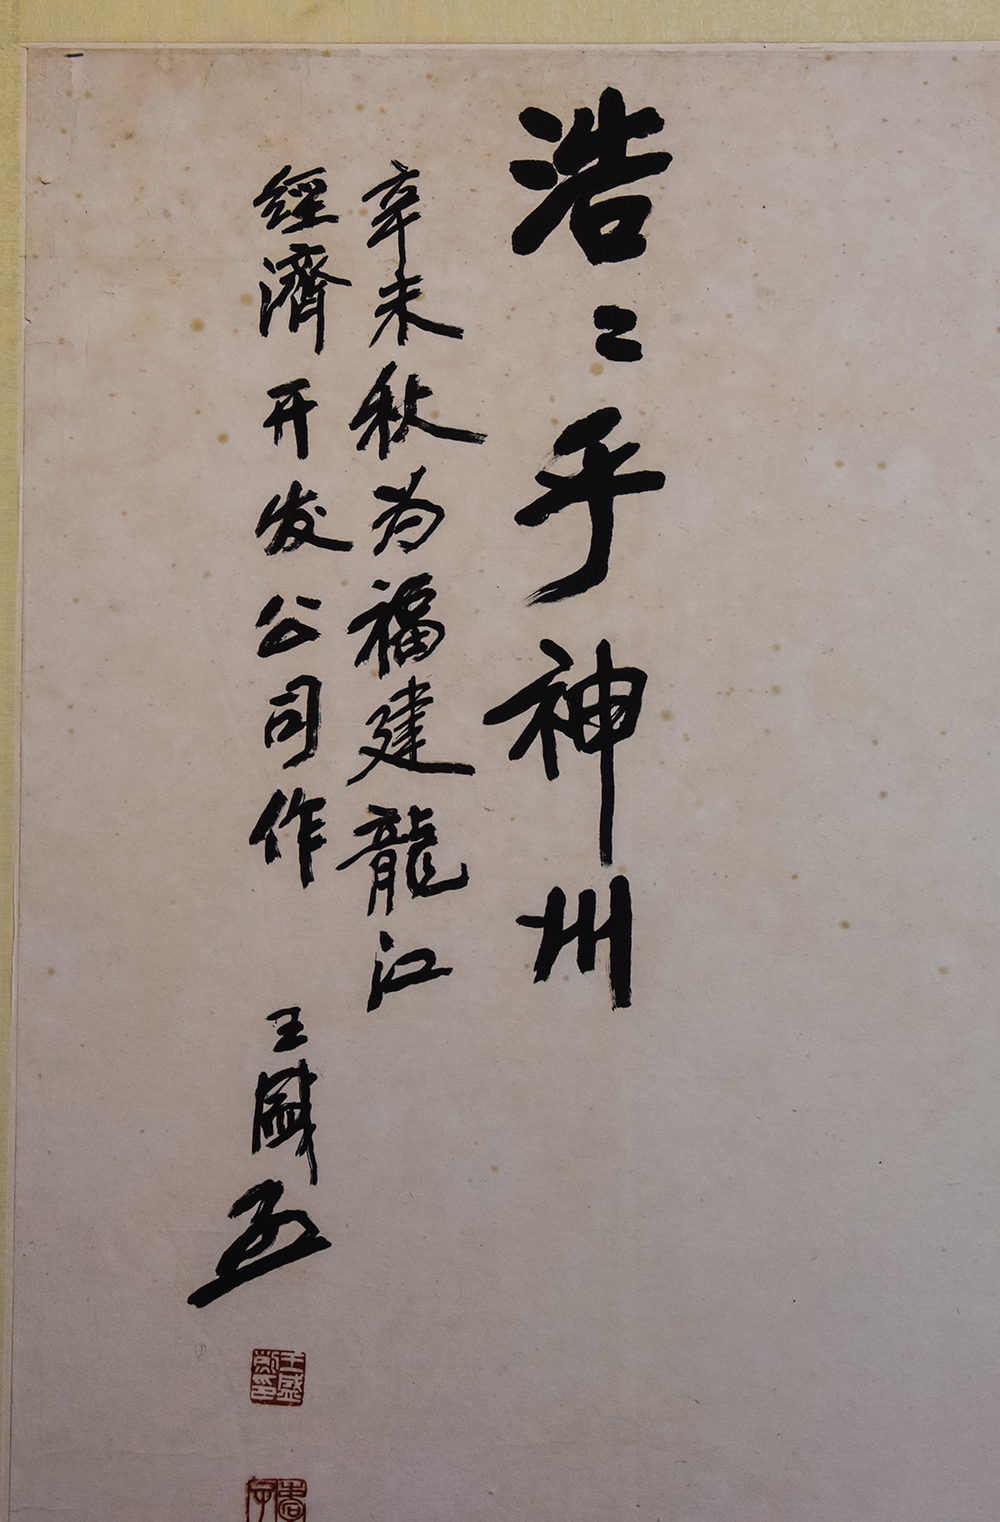 浩々乎神州
辛未秋为福建龍江
經濟开发公司作
王盛烈
王盛烈印